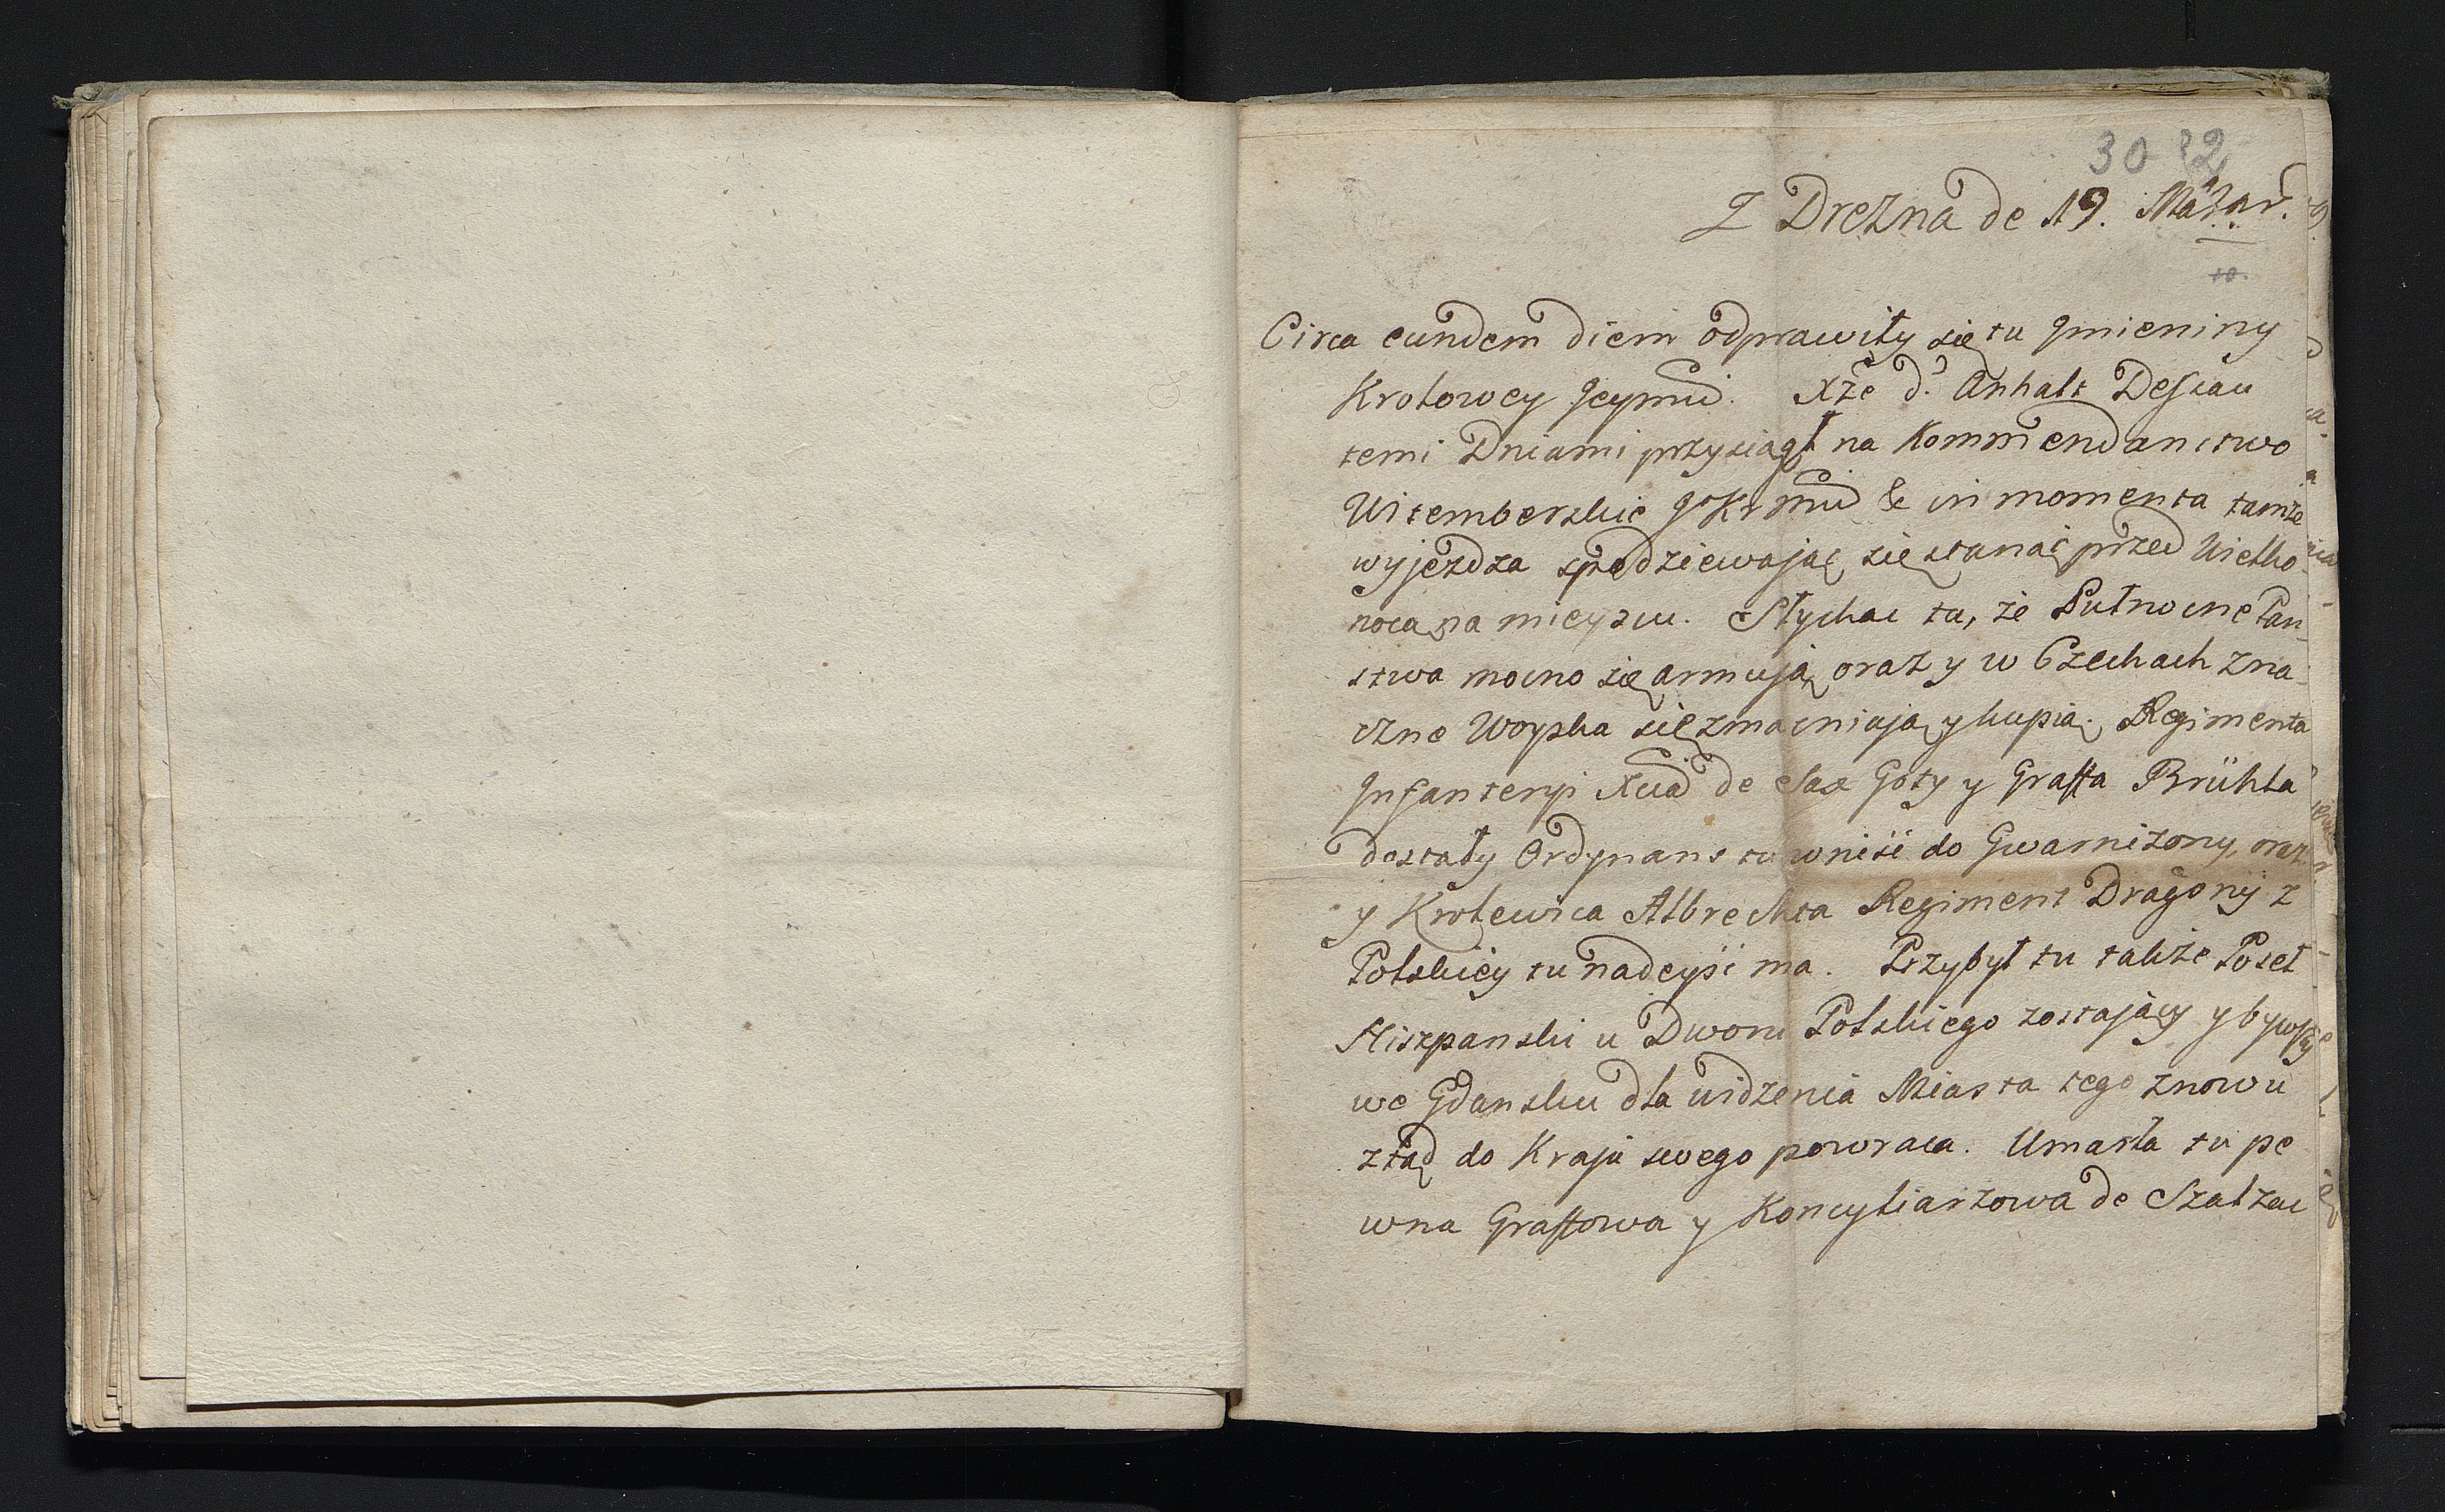 30 32
Z Drezna de 19. Marar.
Circa eundem diem odprawiły się tu Jmieniny
Krolowey Jeymci. Xże d'. Anhalt Dessau
temi Dniami przysiągł na Kommendanstwo
Witemberskie JoKrmci & in momenta tamże
wyjezdza spodziewając się stanąć przed Wielko
nocą na mieyscu. Słychac tu, że Pułnocne Pan-
stwa mocno się armują, oraz y w Czechach zna-
czne Woyska się zmacniają y kupią. Regimenta
Jnfanteryi Xcia de Sax Goty y Graffa Brühla
dostały Ordynans tu wniść do Gwarnizony, oraz
y Krolewica Albrechta Regiment Dragonij z
Polskiey tu nadeyść ma. Przybył tu także Poseł
Hiszpanski u Dworu Polskiego zostający y bywszy
we Gdansku dla widzenia Miasta tego znowu
ztąd do Kraju swego powraca. Umarła tu pe
wna Graffowa y Koncyliarzowa de Szalzac